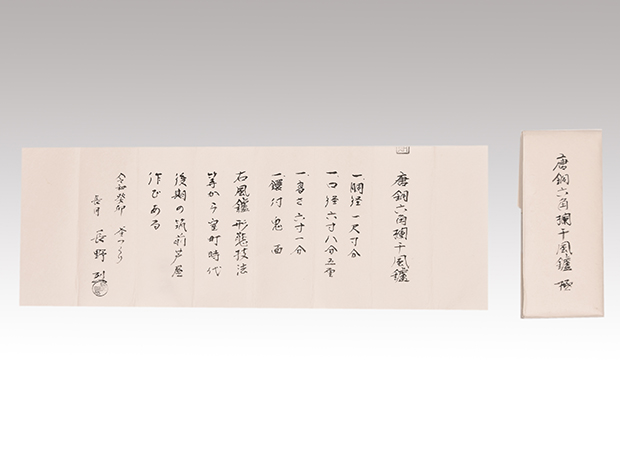 唐銅六角欄干風鑪
一、胴径 一尺寸分
一、口径 六寸八分五里
一、高さ 六寸一分
一、鐶付 鬼面
右風鑪形態技法
等から室町時代
後期の筑前芦屋
作である
令和癸卯
長野 烈
唐銅六角欄干風鑪 極